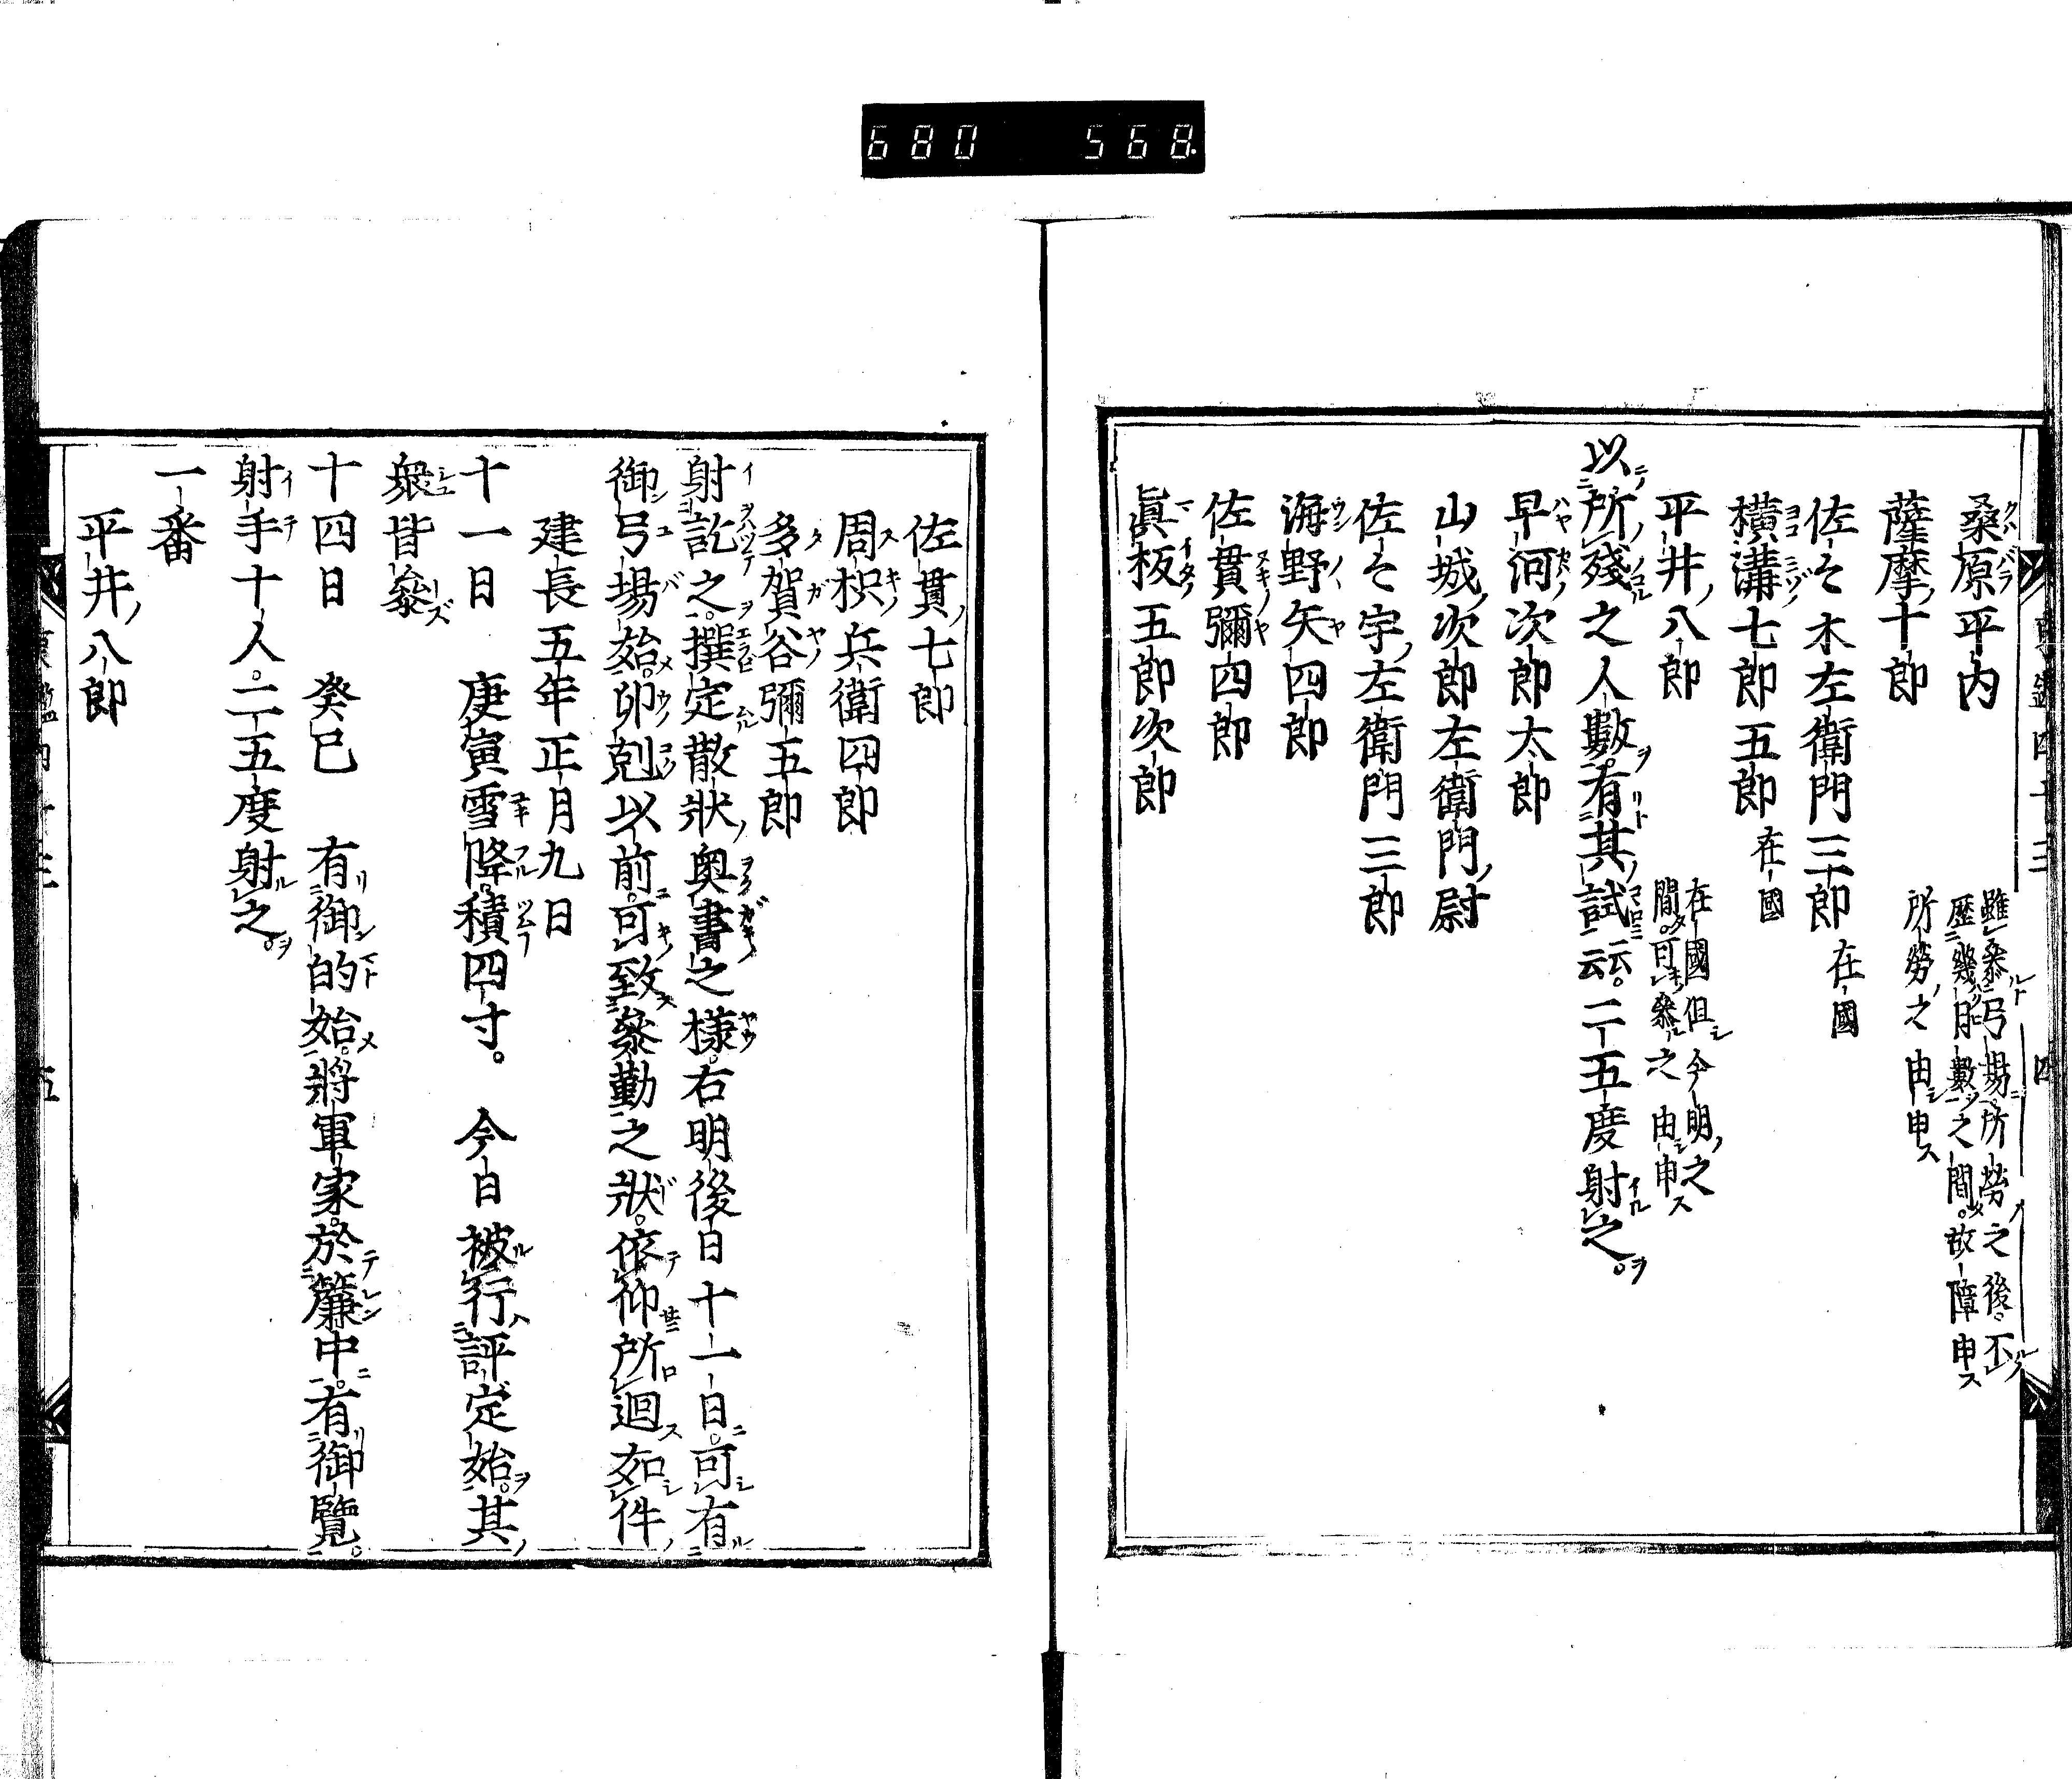 680 568
桑原平内 雖參弓場所勞之後不
歷幾日數之間故障申
薩摩十郎 所勞之由申
佐々木左衛門三郎 在國
橫溝七郎五郎 在國
平井八郎 在國但今明之
間可參之由申
以所殘之人數有其試云云二五度射之
早河次郎太郎
山城次郎左衛門尉
佐々宇左衛門三郎
海野矢四郎
佐貫彌四郎
眞板五郎次郎
佐貫七郎
周枳兵衛四郎
多賀谷彌五郎
射訖之撰定散狀奧書之樣右明後日十一日可有
御弓場始卯剋以前可致參勤之狀依仰所迴如件
建長五年正月九日
十一日 庚寅雪降積四寸。 今日被行評定始其
衆皆參
十四日 癸巳 有御的始將軍家於簾中有御覽
射手十人。二五度射之
一番
平井八郎